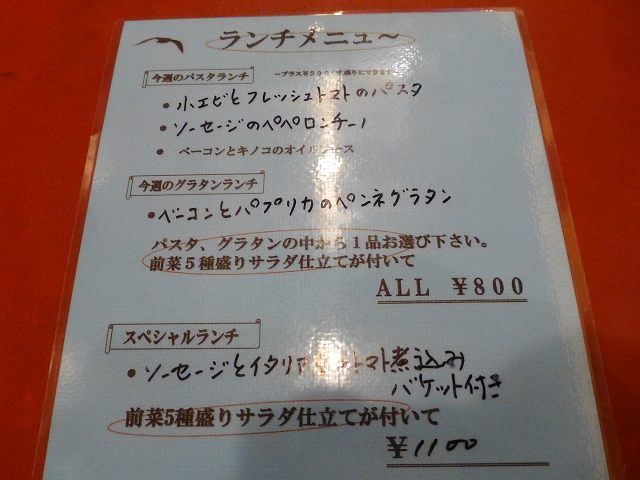 ランチメニュ～
今週のパスタランチ
～プラス￥200で大盛りにできます～
・小エビとフレッシュトマトのパスタ
・ソーセージのペペロンチーノ
・ベーコンとキノコのオイルソース
今週のグラタンランチ
・ベーコンとパプリカのペンネグラタン
パスタ、グラタンの中から１品お選び下さい。
前菜５種盛りサラダ仕立てが付いて
ALL ￥800
スペシャルランチ
・ソーセージとイタリア トマト煮込み
バケット付き
前菜5種盛りサラダ仕立てが付いて
￥1100